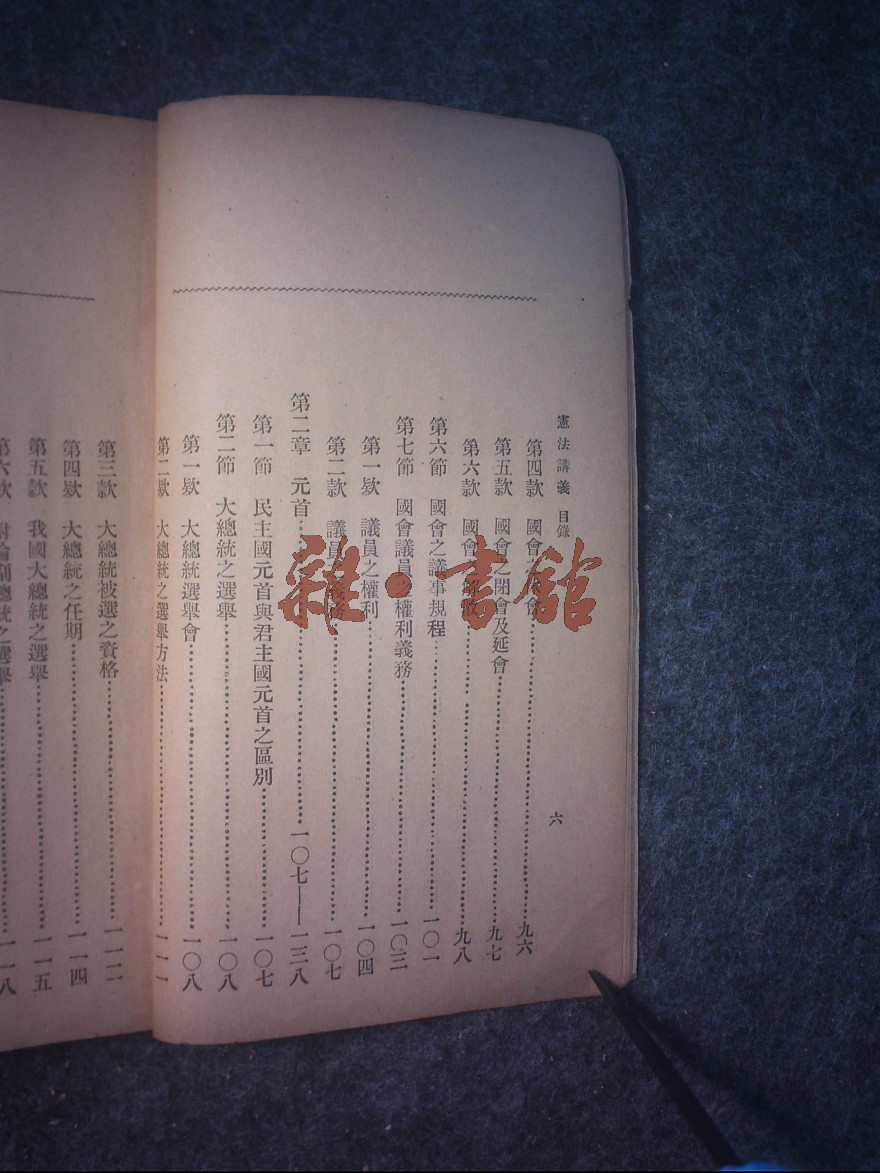 憲法講義 目錄
六
第四款 國會之會……九六
第五款 國會之閉會及延會……九七
第六款 國會解散……九八
第六節 國會之議事規程……一〇一
第七節 國會議員之權利義務……一〇三
第一欵 議員之權利……一〇四
第二款 議員義務……一〇七
第二章 元首……一〇七——一三八
第一節 民主國元首與君主國元首之區別……一〇七
第二節 大總統之選舉……一〇八
第一欵 大總統選舉會……一〇八
第二欵 大總統之選舉方法……一一一
第三款 大總統被選之資格……一一二
第四欵 大總統之任期……一一四
第五款 我國大總統之選舉……一一五
第六欵 副總統之選舉……一一八
雜·書館